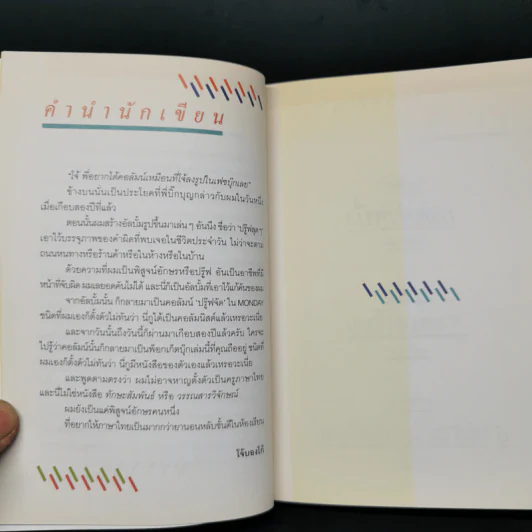 คำนำนักเขียน
"โจ้ พี่อยากได้คอลัมน์เหมือนที่โจ้ลงรูปในเฟซบุ๊กเลย"
ข้างบนนั่นเป็นประโยคที่พี่บิ๊กบุญกล่าวกับผมในวันหนึ่ง
เมื่อเกือบสองปีที่แล้ว
ตอนนั้นผมสร้างอัลบั้มรูปขึ้นมาเล่นๆ อันนึง ชื่อว่า 'ปรู๊ฟสุดๆ'
เอาไว้บรรจุภาพของคำผิดที่พบเจอในชีวิตประจำวัน ไม่ว่าจะตาม
ถนนหนทางหรือร้านค้าหรือในห้างหรือในบ้าน
ด้วยความที่ผมเป็นพิสูจน์อักษรหรือปรู๊ฟ อันเป็นอาชีพที่มี
หน้าที่จับผิด ผมเลยอดคันไม่ได้ และนี่ก็เป็นอัลบั้มที่เอาไว้แก้คันของผม
จากอัลบั้มนั้น ก็กลายมาเป็นคอลัมน์ 'ปรู๊ฟจัด' ใน MONDAY
ชนิดที่ผมเองก็ตั้งตัวไม่ทันว่า นี่กูได้เป็นคอลัมนิสต์แล้วเหรอวะเนี่ย
และจากวันนั้นถึงวันนี้ก็ผ่านมาเกือบสองปีแล้วครับ ใครจะ
ไปรู้ว่าคอลัมน์นั้นก็กลายมาเป็นพ็อกเก็ตบุ๊กเล่มนี้ที่คุณถืออยู่ ชนิดที่
ผมเองก็ตั้งตัวไม่ทันว่า นี่กูมีหนังสือของตัวเองแล้วเหรอวะเนี่ย
และพูดตามตรงว่า ผมไม่อาจหาญตั้งตัวเป็นครูภาษาไทย
และนี่ไม่ใช่หนังสือ ทักษะสัมพันธ์ หรือ วรรณสารวิจักษณ์
ผมยังเป็นแค่พิสูจน์อักษรคนหนึ่ง
ที่อยากให้ภาษาไทยเป็นมากกว่ายานอนหลับชั้นดีในห้องเรียน
โจ้บองโก้